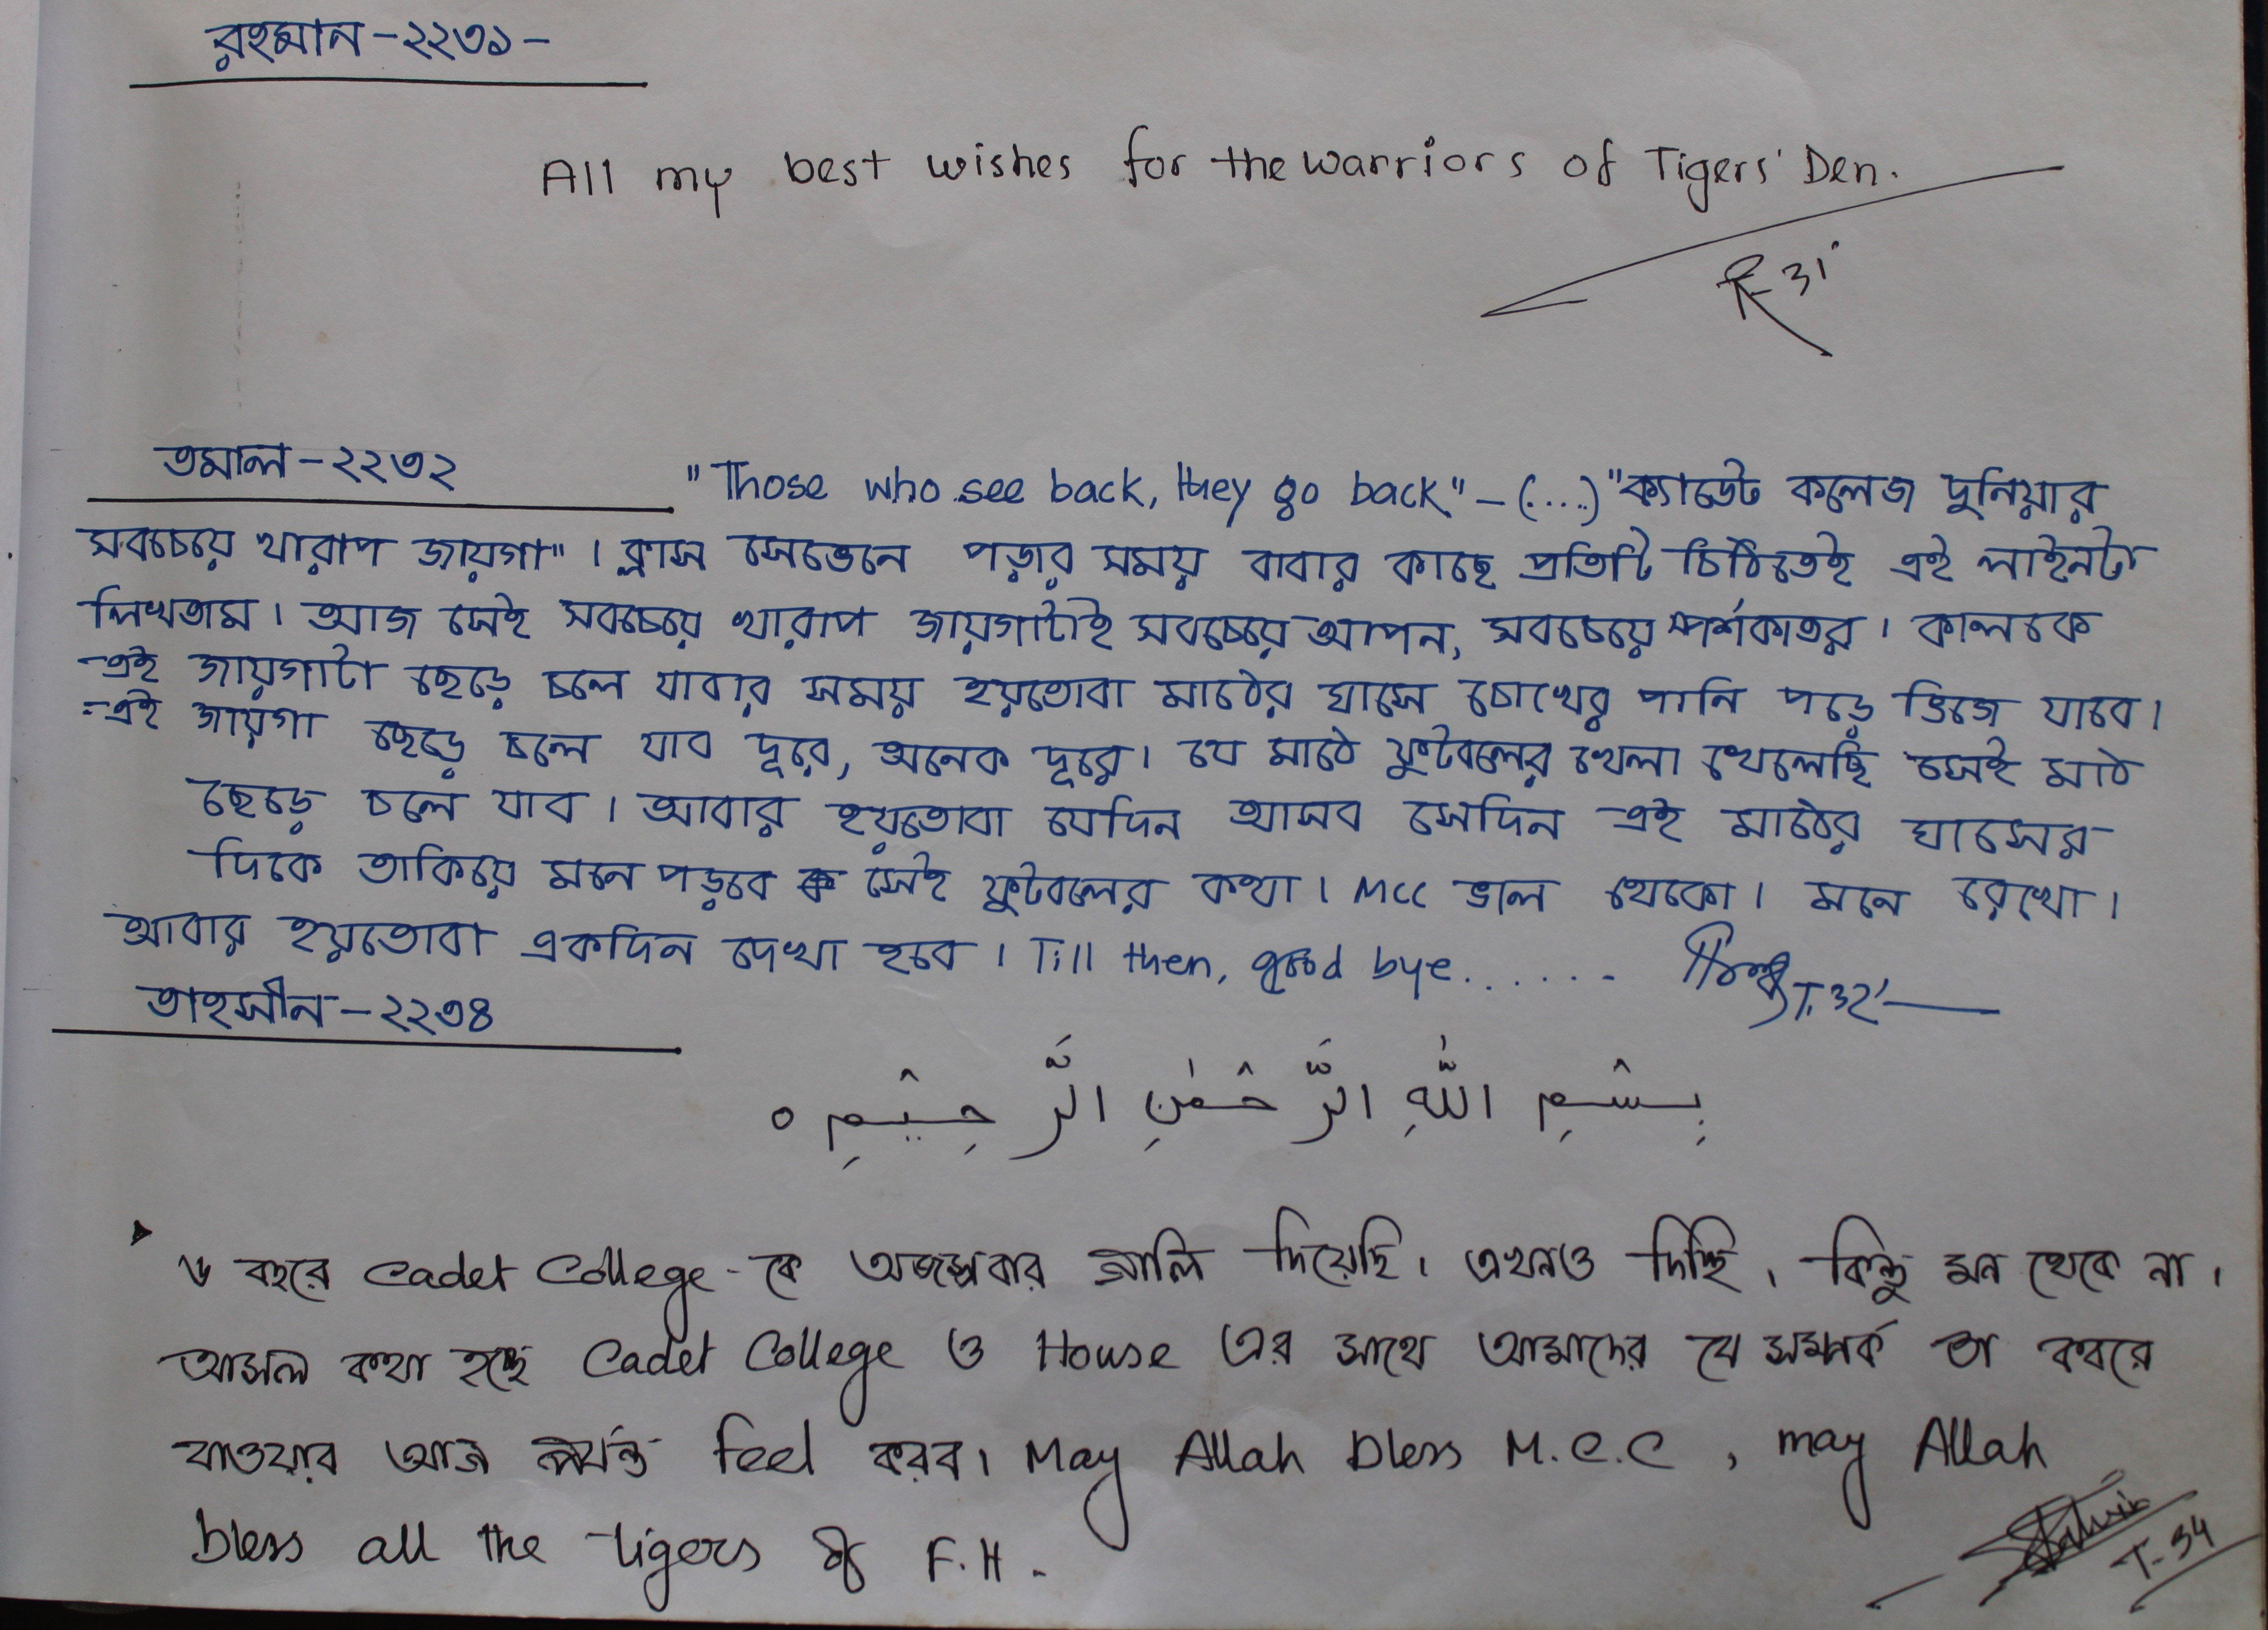 রহমান - ২২৩১ -
All my best wishes for the warriors of Tigers' Den.
R-31'
তমাল - ২২৩২
"Those who see back, they go back" - (....) "ক্যাডেট কলেজ দুনিয়ার
সবচেয়ে খারাপ জায়গা" । ক্লাস সেভেনে পড়ার সময় বাবার কাছে প্রতিটি চিঠিতেই এই লাইনটা
লিখতাম । আজ সেই সবচেয়ে খারাপ জায়গাটাই সবচেয়ে আপন, সবচেয়ে স্পর্শকাতর । কালকে
এই জায়গাটা ছেড়ে চলে যাবার সময় হয়তোবা মাঠের ঘাসে চোখের পানি পড়ে ভিজে যাবে ।
এই জায়গা ছেড়ে চলে যাব দূরে, অনেক দূরে । যে মাঠে ফুটবলের খেলা খেলেছি সেই মাঠ
ছেড়ে চলে যাব । আবার হয়তোবা যেদিন আসব সেদিন এই মাঠের ঘাসের
দিকে তাকিয়ে মনে পড়বে সেই ফুটবলের কথা । MCC ভাল থেকো । মনে রেখো ।
আবার হয়তোবা একদিন দেখা হবে । Till then, good bye.......
T.32'
তাহসীন - ২২৩৪
بِسْمِ اللّٰهِ الرَّحْمٰنِ الرَّحِيْمِ ○
৬ বছরে Cadet College - কে অজস্রবার গালি দিয়েছি । এখনও দিচ্ছি , কিন্তু মন থেকে না ।
আসল কথা হচ্ছে Cadet College ও House এর সাথে আমাদের যে সম্পর্ক তা কবরে
যাওয়ার আগ পর্যন্ত feel করব । May Allah bless M.C.C , may Allah
bless all the tigers of F.H.
T-34